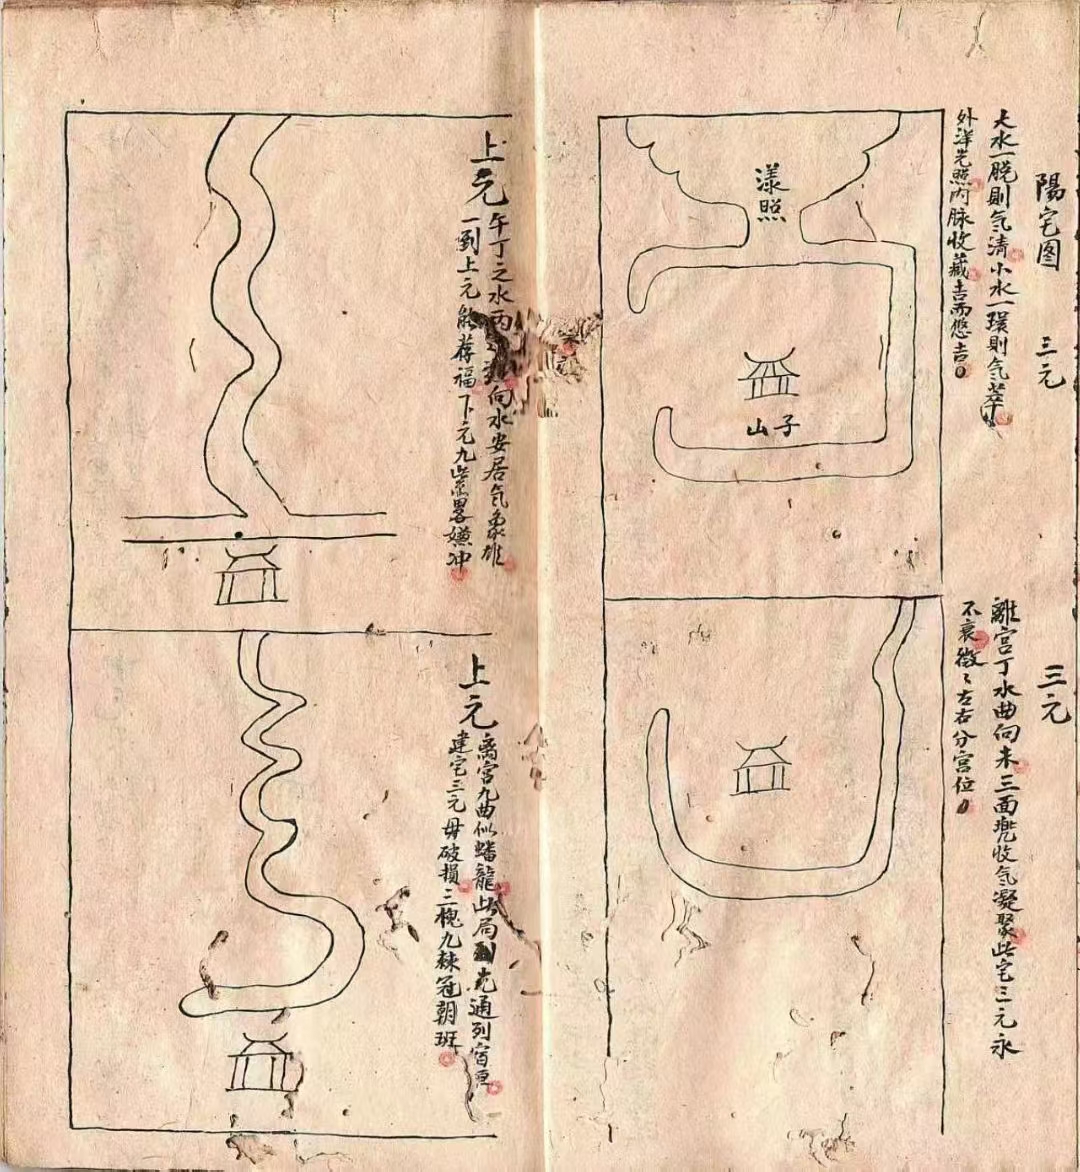 陽宅图
三元
大水一脱則气清小水一環則气萃
外洋先照内脉收藏吉而悠吉
漾照
山子
三元
離宫丁水曲向未三面兜收气凝聚此宅三元永
不衰微〻左右分宫位
上元
午丁之水丙 向水安居气象雄
一到上元能荐福下元九紫畧嫌冲
上元
离宫九曲似蟠龍此局 元通列宿
建宅三元毋破損三槐九棘冠朝班